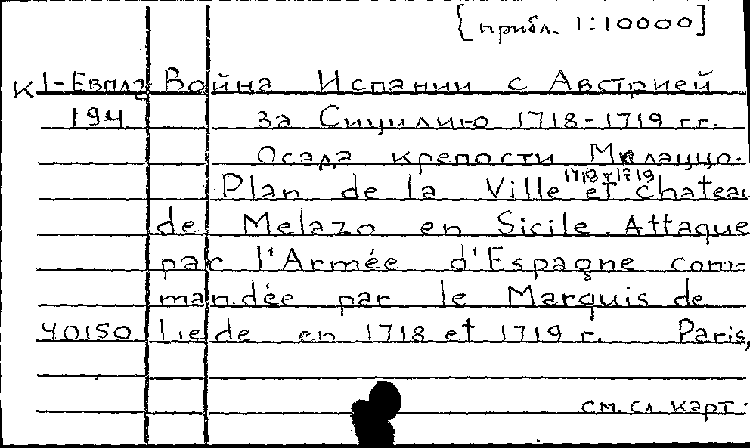 [прибл. 1:10000]
К 1-Евплд Война Испании с Австрией
194 за Сицилию 1718-1719 гг.
Осада крепости Мелаццо.
1718-1719
Plan de la Ville et chateau
de Melazo en Sicile. Attaque
par l'Armée d'Espagne com-
mandée par le Marquis de
40150 Liede en 1718 et 1719 г. Paris,
см. сл. карт.